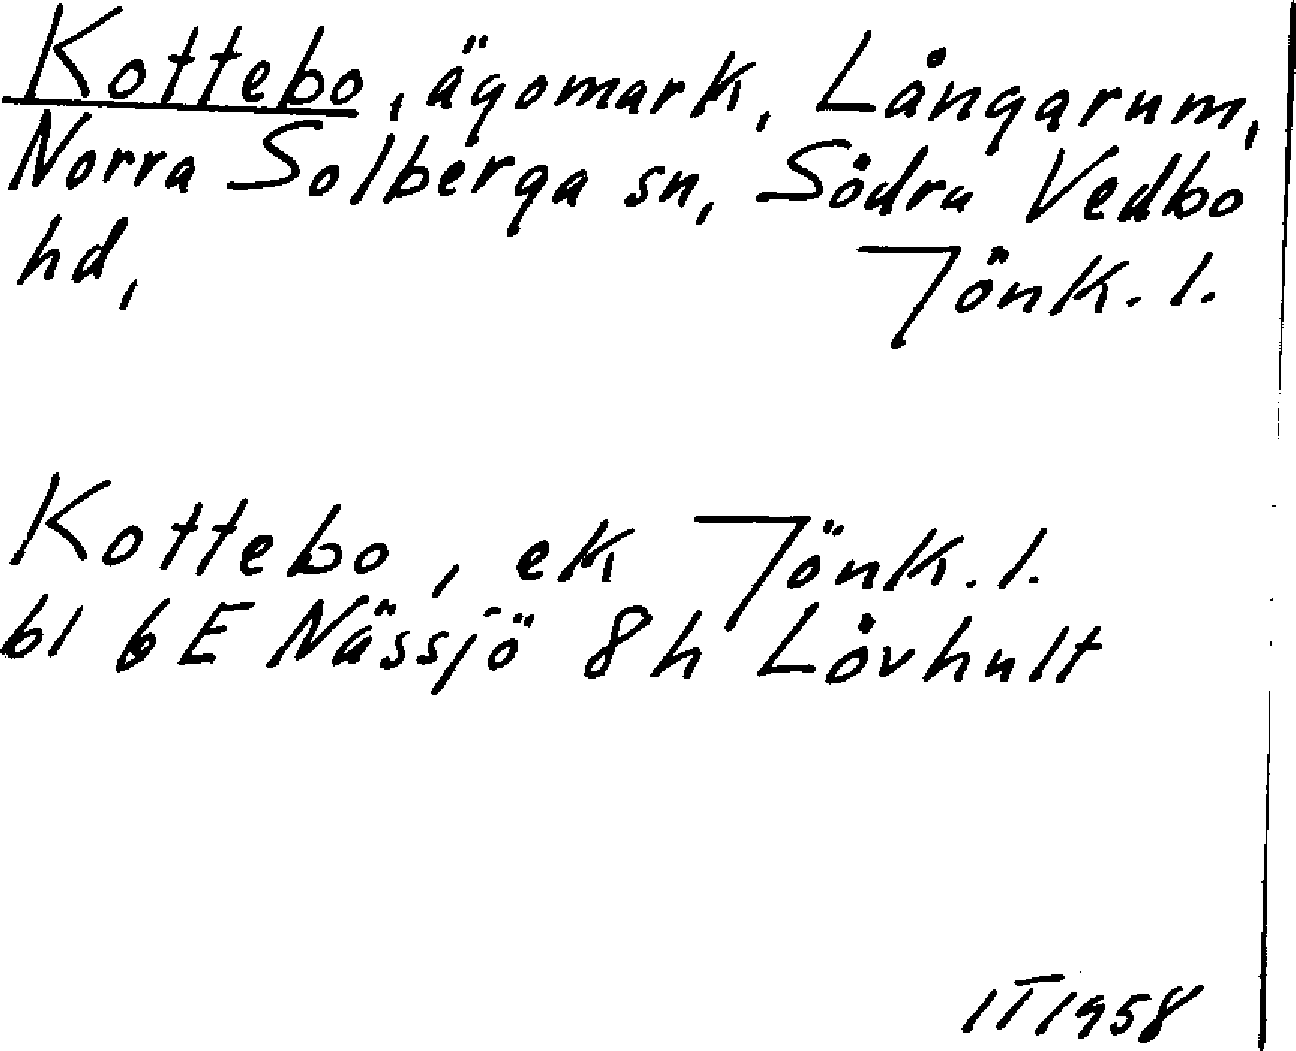 Kottebo, ägomark, Långarum,
Norra Solberga sn, Södra Vedbo
hd, Jönk. l.
Kottebo, ek Jönk. l.
bl 6E Nässjö 8h Lövhult
IT 1958